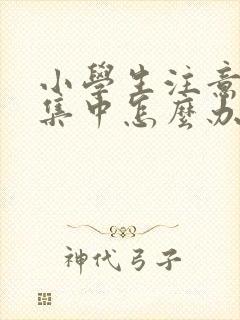 小學生注意
集中怎麼办
神代弓子